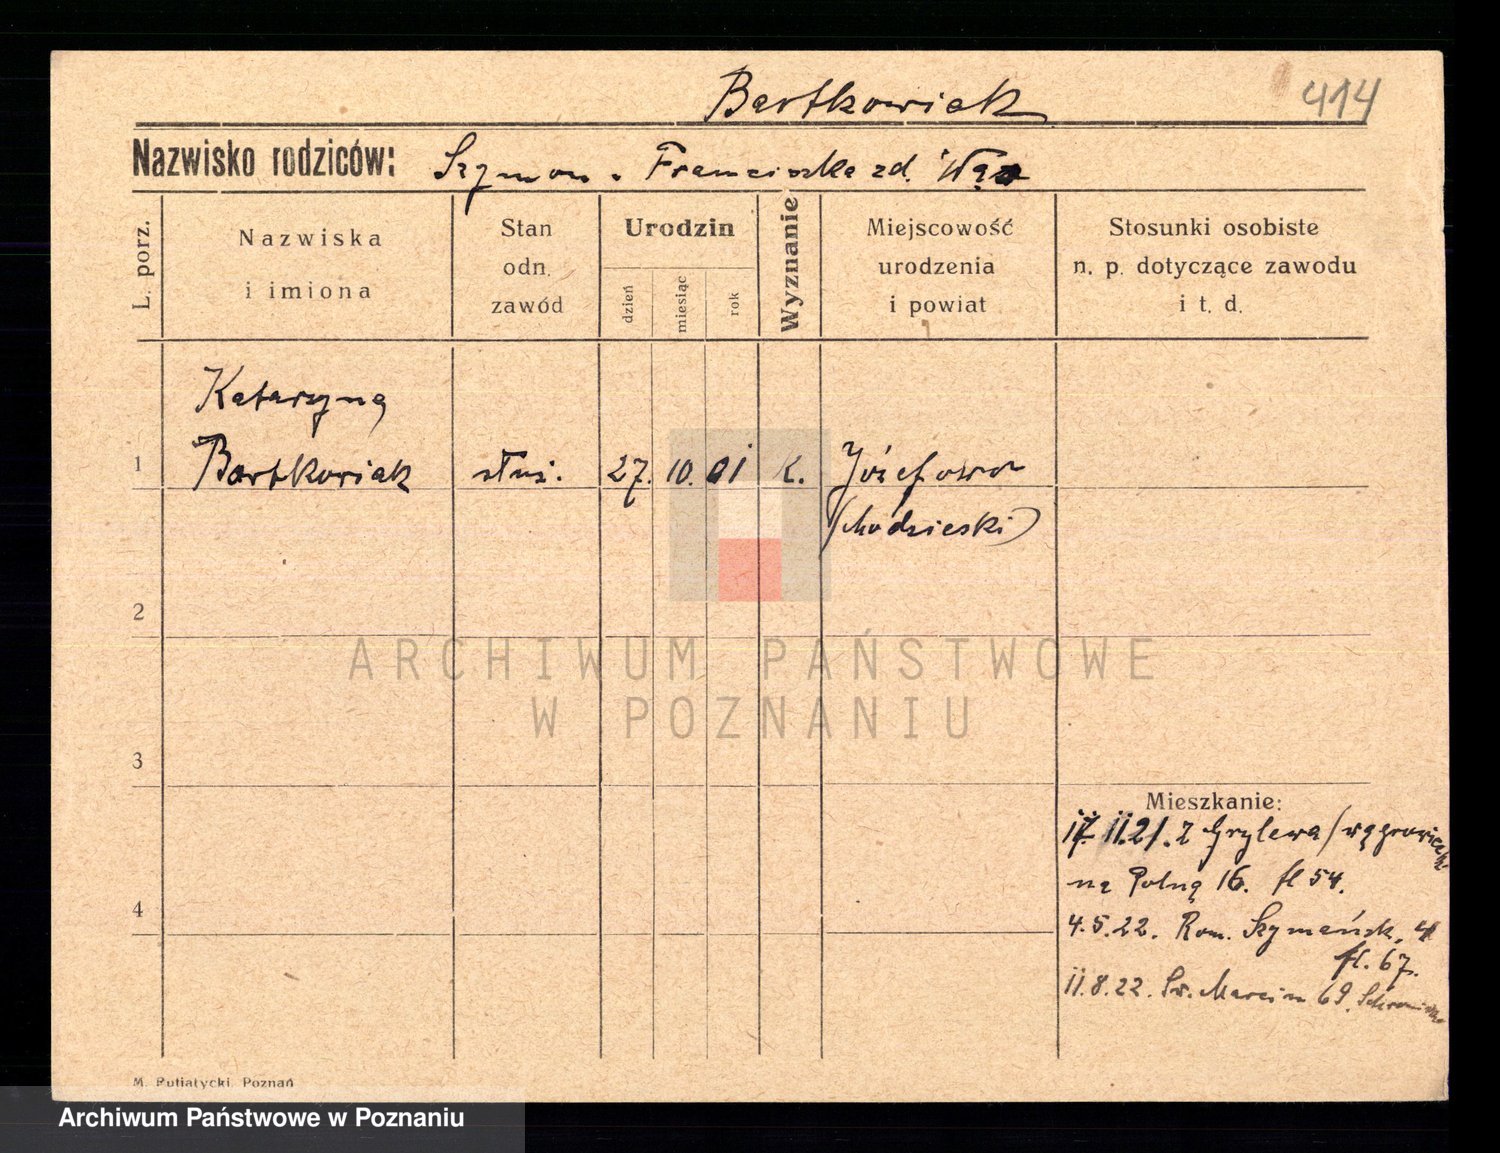 Bartkowiak 414
Nazwisko rodziców: Szymon . Franciszka zd. Wąs
L. porz.
Nazwiska
i imiona
Stan
odn.
zawód
Urodzin
dzień
miesiąc
rok
Wyznanie
Miejscowość
urodzenia
i powiat
Stosunki osobiste
n. p. dotyczące zawodu
i t. d.
Katarzyna
1 Bartkowiak służ. 27. 10. 01 K. Józefowo
(Chodzieski)
2
ARCHIWUM PAŃSTWOWE
W POZNANIU
3
Mieszkanie:
17. 11.21. z Grylewa (wągrowiecki
na Polną 16. fl 54.
4
4.5.22. Rom. Szymańsk. 4
fl. 67.
11.8.22. Św. Marcin 69.
M. Putiatycki, Poznań
Archiwum Państwowe w Poznaniu